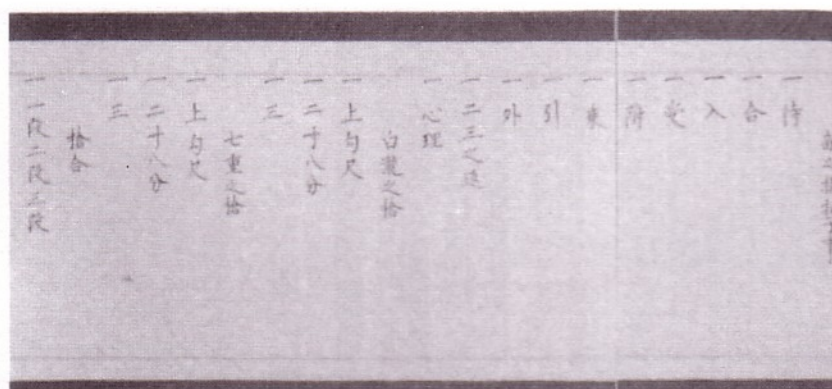 一 待
一 合
一 入
一 受
一 附
一
一 引
一 外
一 二三之
一 心理
白瀧之拾
一 上勾尺
一 二十八分
一 三
七重之拾
一 上勾尺
一 二十八分
一 三
拾合
一 一段二段三段